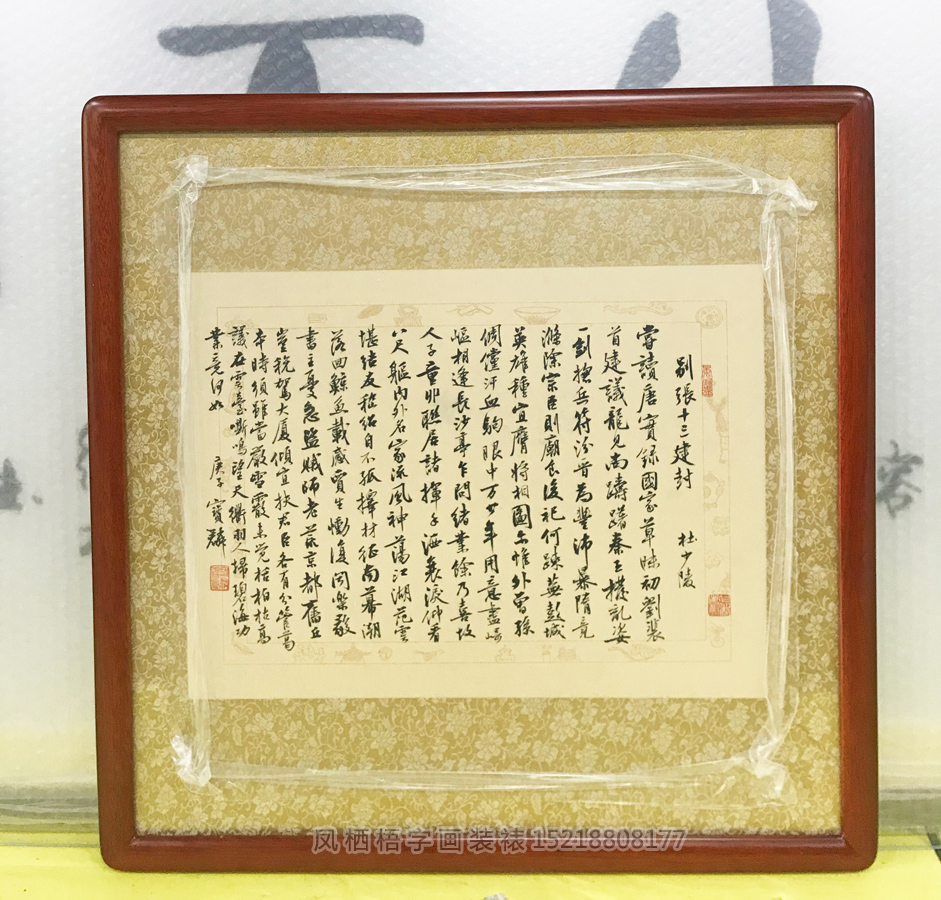 別張十三建封 杜少陵
嘗讀唐實録國家草昧初劉裴
首建議龍見尚躊躇秦王撥亂姿
一劍揔兵符汾晉為豐沛暴隋竟
滌除宗臣則廟食後祀何疎蕪彭城
英雄種宜膺將相圖尓惟外曾孫
倜儻汗血駒眼中万少年用意盡崎
嶇相逢長沙亭乍問緒業餘乃喜故
人子童丱聯居諸揮手洒衰淚仰看
八尺軀內外名家流風神蕩江湖范雲
堪結友嵇紹自不孤擇材征南幕潮
落回鯨魚載感賈生慟復聞樂毅
書主憂急盜賊師老荒京都舊丘
豈稅駕大厦傾宜扶君臣各有分管葛
本時須雖當嚴雪霰未覺栝柏枯高
議在雲臺嘶鳴望天衢羽人掃碧海功
業竟何如 庚子 寶麟
凤栖梧字画装裱 15218808177